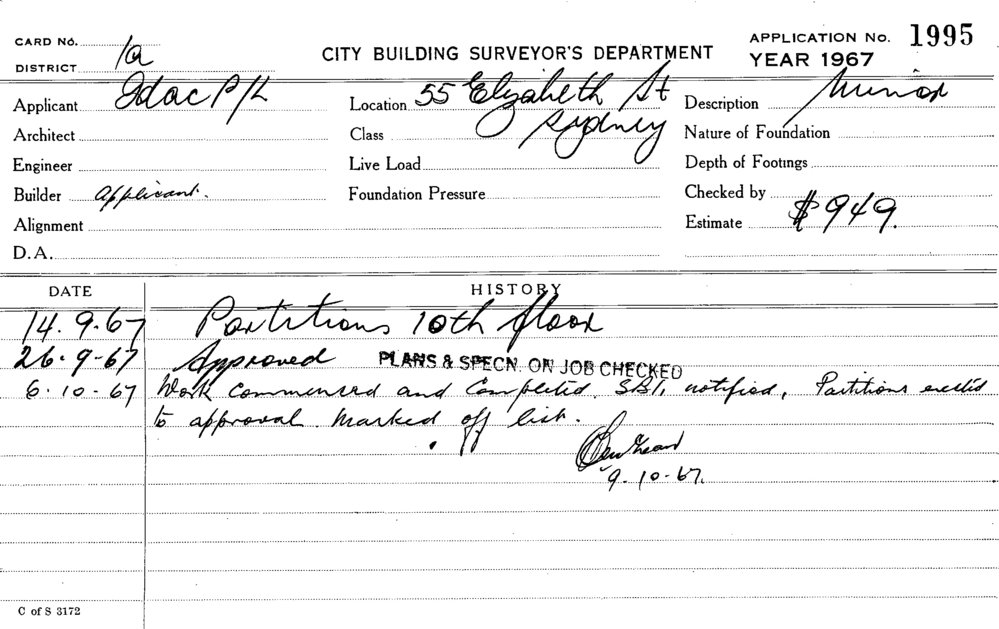 CARD No.
DISTRICT 1a
CITY BUILDING SURVEYOR'S DEPARTMENT
APPLICATION No. 1995
YEAR 1967
Applicant Idac P/L
Location 55 Elizabeth St
Sydney
Description Minor
Architect
Class
Nature of Foundation
Engineer
Live Load
Depth of Footings
Builder applicant.
Foundation Pressure
Checked by
Alignment
Estimate $949.
D.A.
DATE HISTORY
14.9.67 Partitions 10th floor
26.9-67 Approved PLANS & SPECN. ON JOB CHECKED
6.10-67 Work commenced and Completed. S.B.I. notified, Partitions erected
to approval. Marked off list.
9-10-67.
C of S 3172